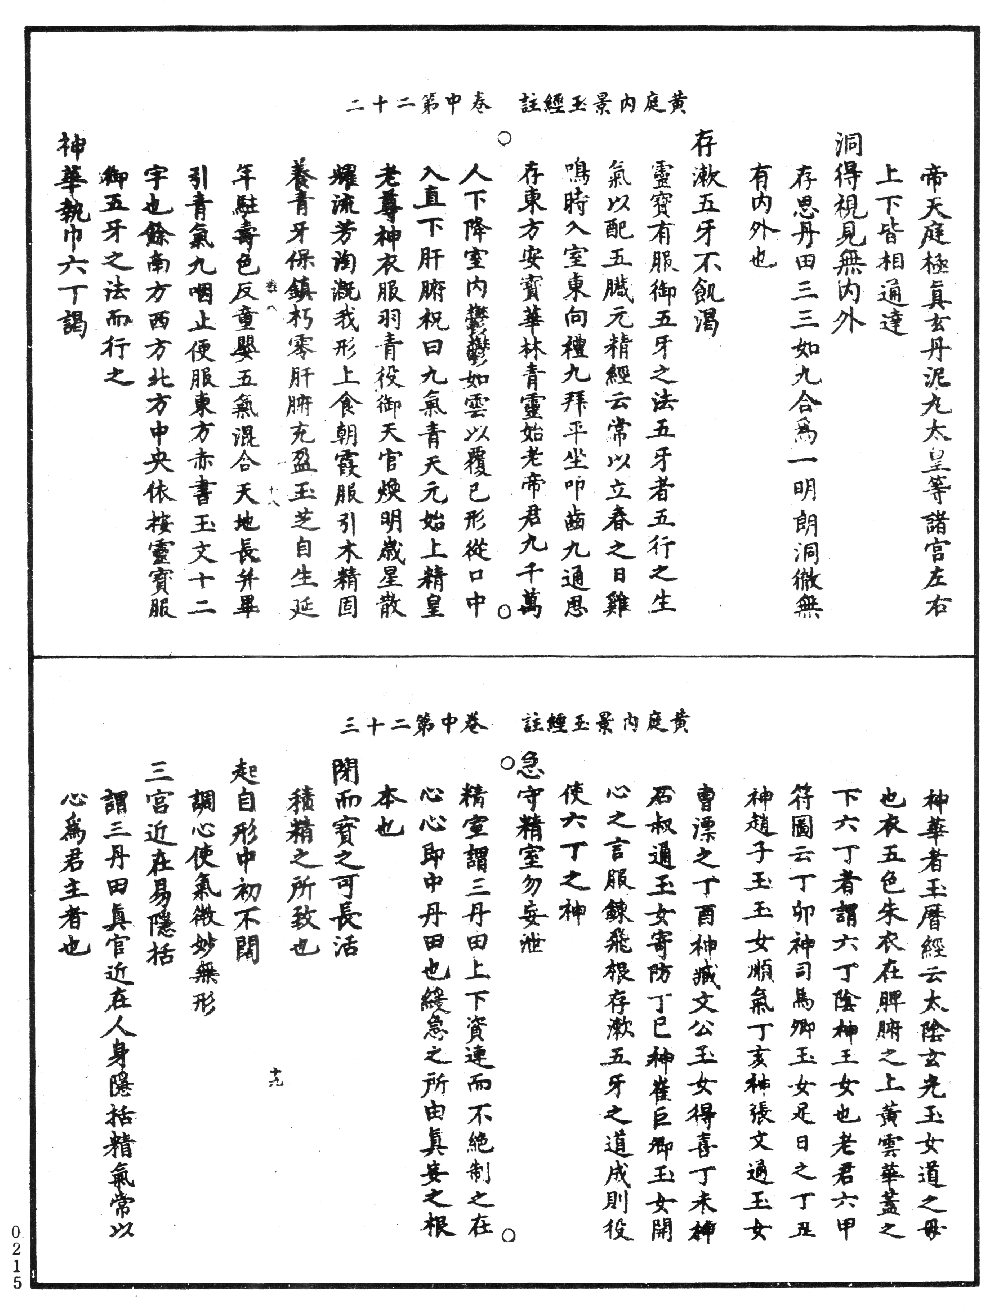 黃庭內景玉經註　卷中第二十二
帝天庭極真玄丹泥九太皇等諸宮左右
上下皆相通達
洞得視見無內外
存思丹田三三如九合爲一明朗洞徹無
有內外也
存漱五牙不飢渴
靈寶有服御五牙之法五牙者五行之生
氣以配五臟元精經云常以立春之日雞
鳴時入室東向禮九拜平坐叩齒九通思
存東方安寶華林青靈始老帝君九千萬
人下降室內鬱鬱如雲以覆己形從口中
入直下肝腑祝曰九氣青天元始上精皇
老尊神衣服羽青役御天官煥明歲星散
耀流芳陶溉我形上食朝霞服引木精固
養青牙保鎮朽零肝腑充盈玉芝自生延
卷八　十八
年駐壽色反童嬰五氣混合天地長幷畢
引青氣九咽止便服東方赤書玉文十二
字也餘南方西方北方中央依按靈寶服
御五牙之法而行之
神華執巾六丁謁
黃庭內景玉經註　卷中第二十三
神華者玉曆經云太陰玄光玉女道之母
也衣五色朱衣在脾腑之上黃雲華蓋之
下六丁者謂六丁陰神玉女也老君六甲
符圖云丁卯神司馬卿玉女足日之丁丑
神趙子玉玉女順氣丁亥神張文通玉女
曹漂之丁酉神臧文公玉女得喜丁未神
石叔通玉女寄防丁巳神崔巨卿玉女開
心之言服鍊飛根存漱五牙之道成則役
使六丁之神
急守精室勿妄泄
精室謂三丹田上下資連而不絕制之在
心心即中丹田也緩急之所由真妄之根
本也
閉而寶之可長活
積精之所致也
十九
起自形中初不闊
調心使氣微妙無形
三宮近在易隱括
謂三丹田真官近在人身隱括精氣常以
心爲君主者也
0215